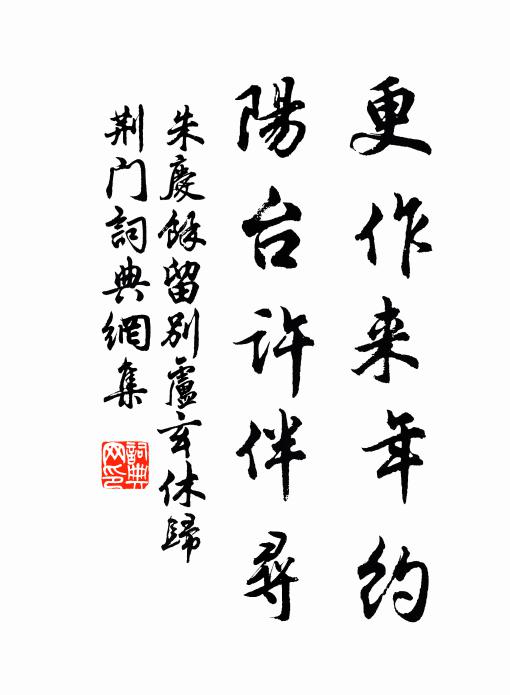 更作来年约
陽台許伴尋
朱慶餘留别盧玄休歸
荆门詞典網集
詞典
网印